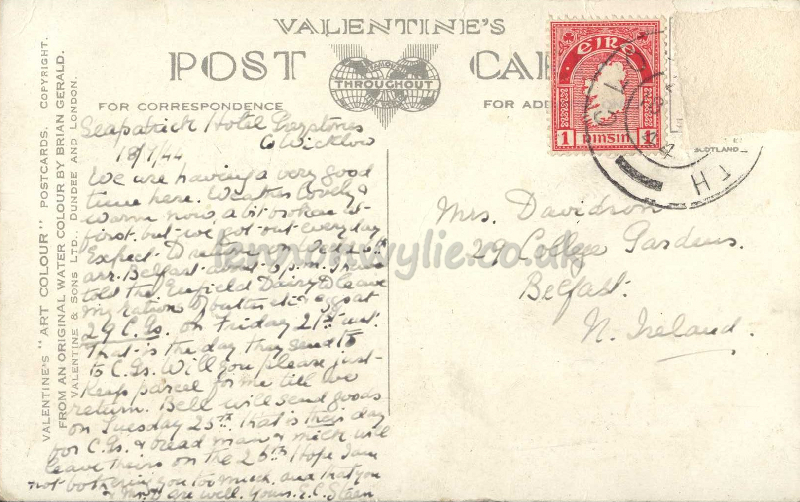 VALENTINE'S
POST CA
THROUGHOUT
FOR CORRESPONDENCE
FOR ADD
VALENTINE'S "ART COLOUR" POSTCARDS. COPYRIGHT.
FROM AN ORIGINAL WATER COLOUR BY BRIAN GERALD.
VALENTINE & SONS LTD., DUNDEE AND LONDON.
EIRE
1 PINSIN 1
SCOTLAND
Seapatrick Hotel Greystones
Co Wicklow
18/7/44
We are having a very good
time here. Weather lovely &
warm now, a bit broken at
first. but we got out every day
Expect Dautie on Wed
arr. Belfast about 6 p.m. I have
told the Enfield Dairy to leave
my ration of butter etc & eggs at
29 C. Gs. on Friday 21st inst.
That is the day they send to
to C. Gs. Will you please just
keep parcel for me till we
return. Bell will send goods
on Tuesday 25th. That is their day
for C. Gs. & bread man & milk will
leave theirs on the 26th Hope I am
not bothering you too much, and that you
& Mr D are well. Yours. E. C. Steen
Mrs. Davidson
29 College Gardens.
Belfast.
N. Ireland.
lennonwylie.co.uk